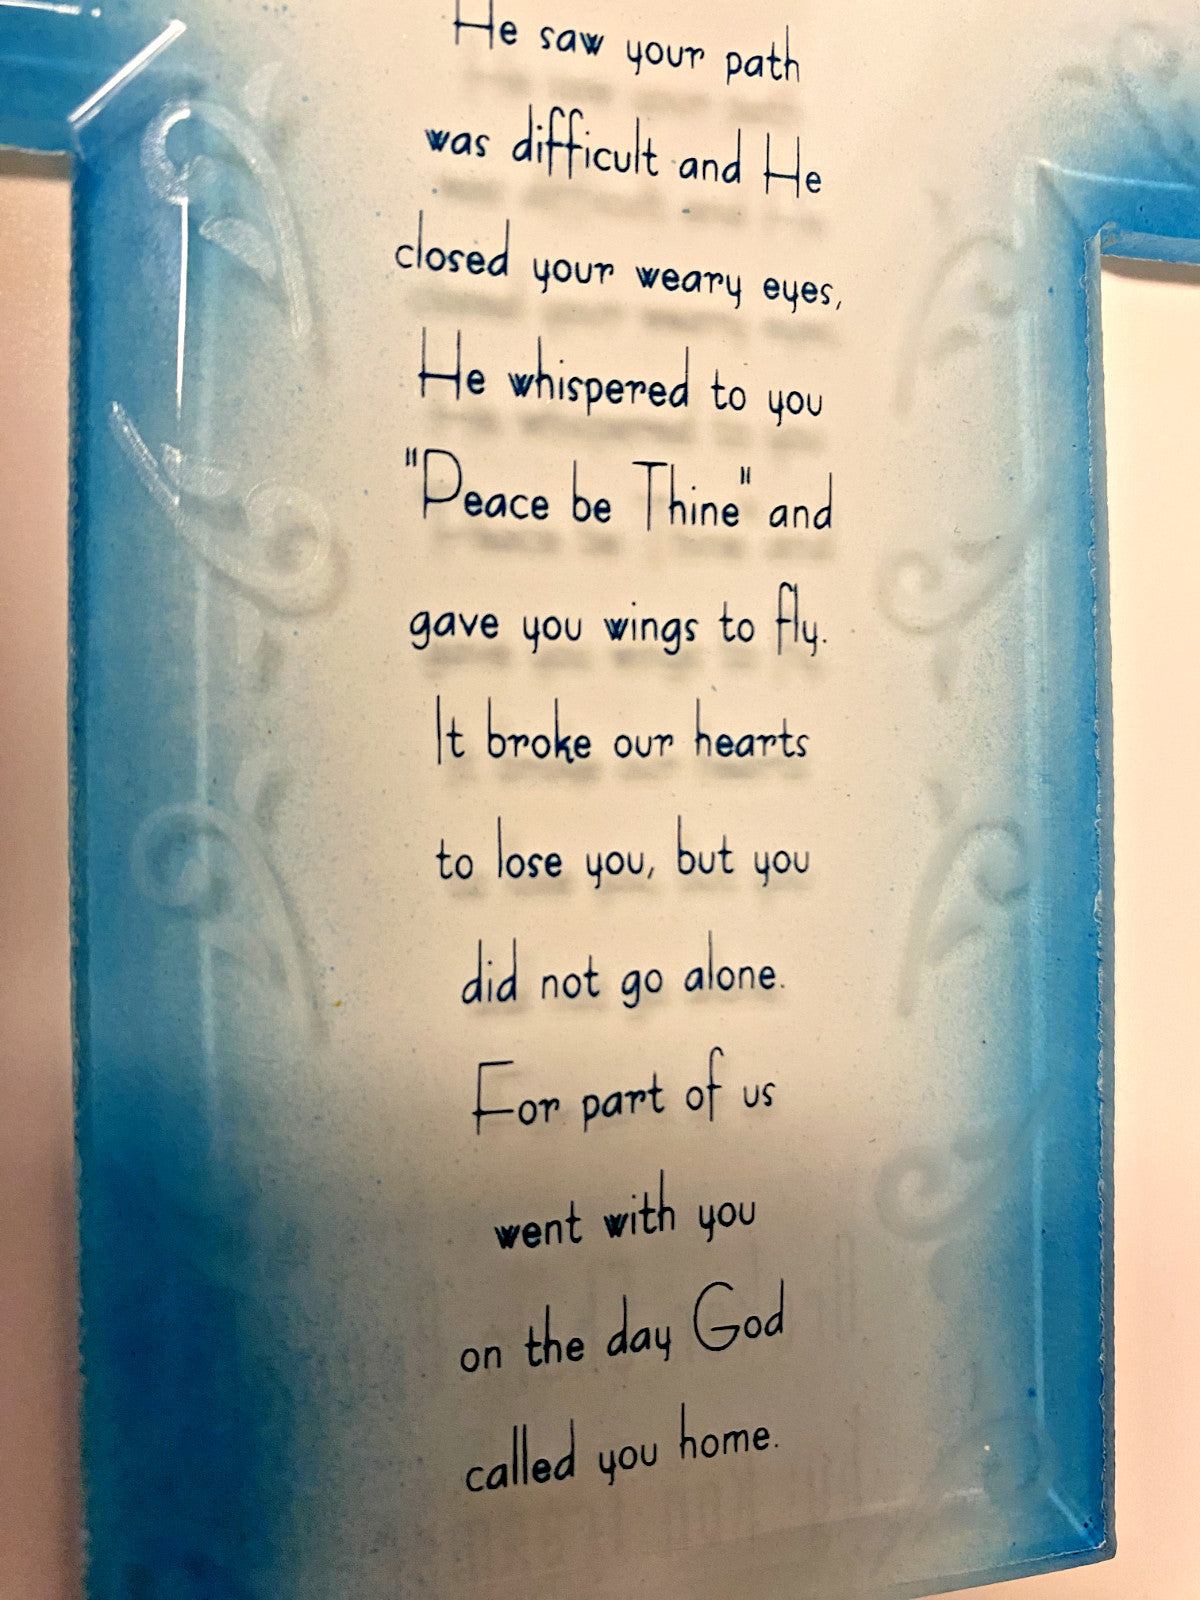 He saw your path
was difficult and He
closed your weary eyes,
He whispered to you
"Peace be Thine" and
gave you wings to fly.
It broke our hearts
to lose you, but you
did not go alone.
For part of us
went with you
on the day God
called you home.